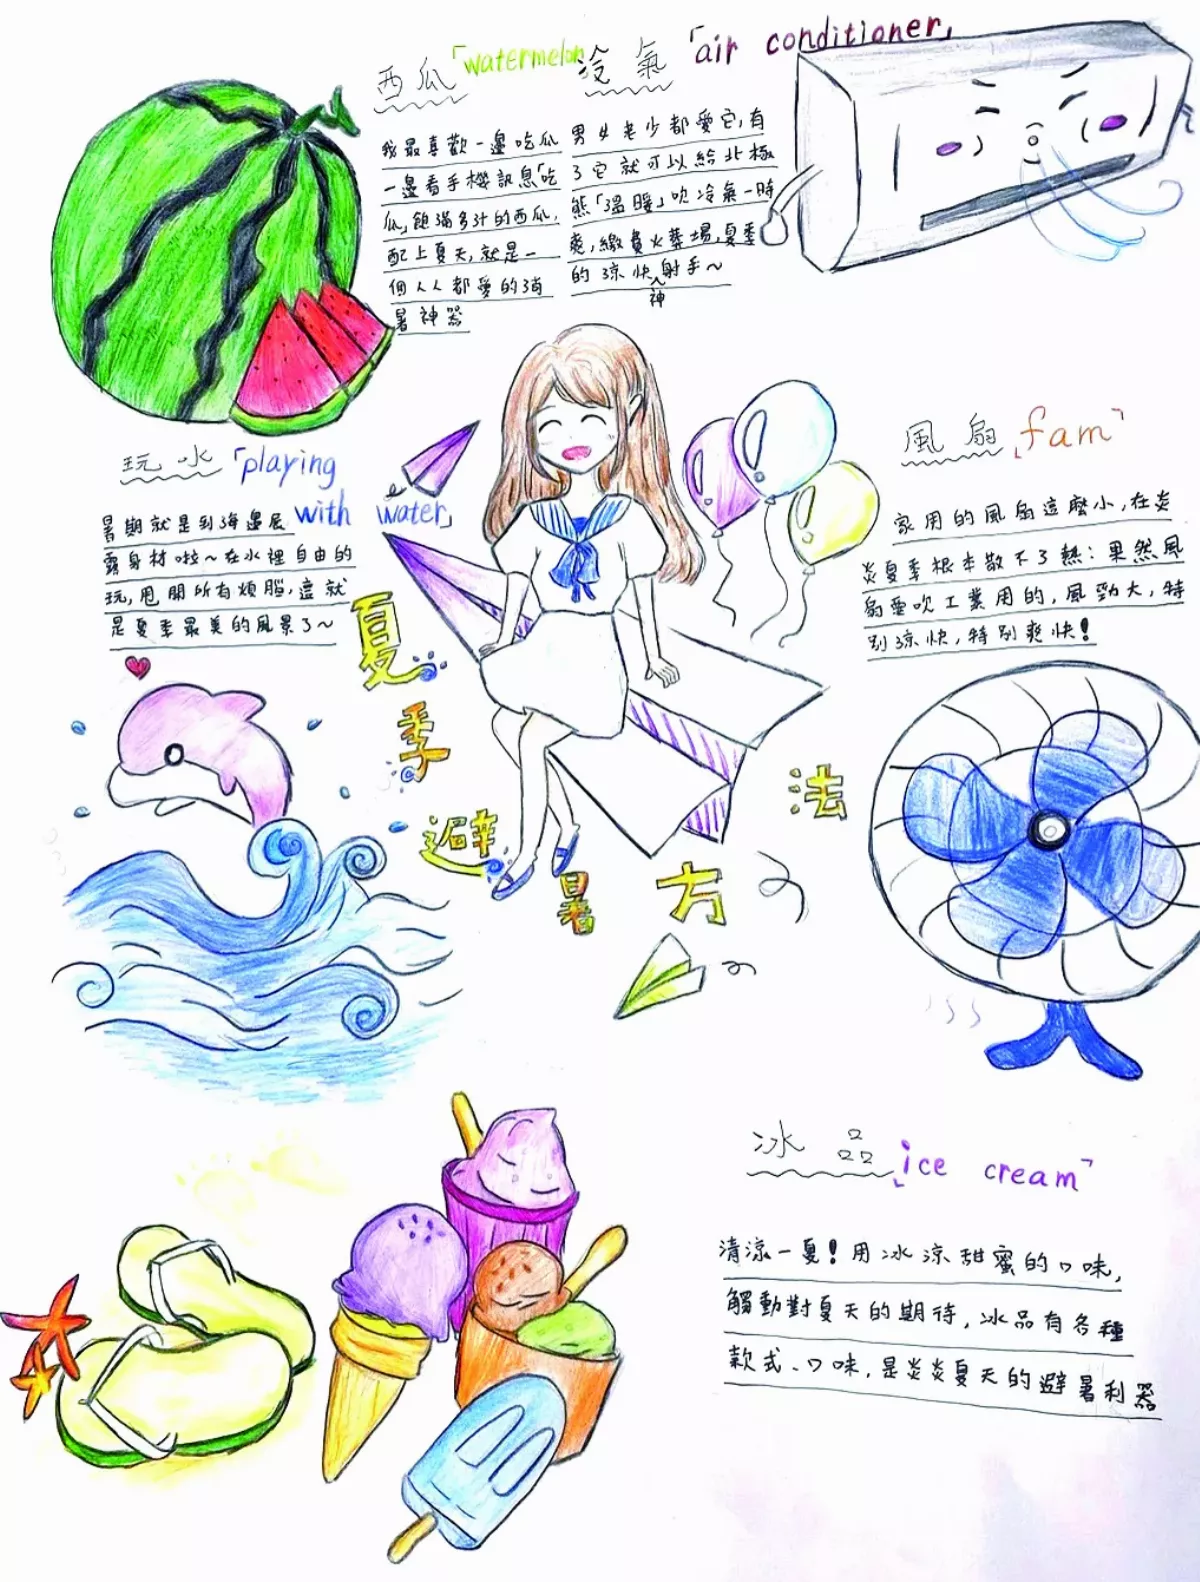 西瓜「watermelon
我最喜歡一邊吃瓜
一邊看手機訊息「吃
瓜」飽滿多汁的西瓜,
配上夏天,就是一
個人人都愛的消
暑神器
冷氣「air conditioner」
男女老少都愛它,有
了它就可以給北極
熊「溫暖」吹冷氣一時
爽,繳費火葬場,夏季
的涼快神射手~
玩水「playing
with water」
暑期就是到海邊展
露身材啦~在水裡自由的
玩,甩開所有煩腦,這就
是夏季最美的風景了~
風扇「fam」
家用的風扇這麼小,在炎
炎夏季根本敵不了熱:果然風
扇要吹工業用的,風勁大,特
別涼快,特別爽快!
夏季避暑方法
冰品「ice cream」
清涼一夏!用冰涼甜蜜的口味,
觸動對夏天的期待,冰品有各種
款式、口味,是炎炎夏天的避暑利器